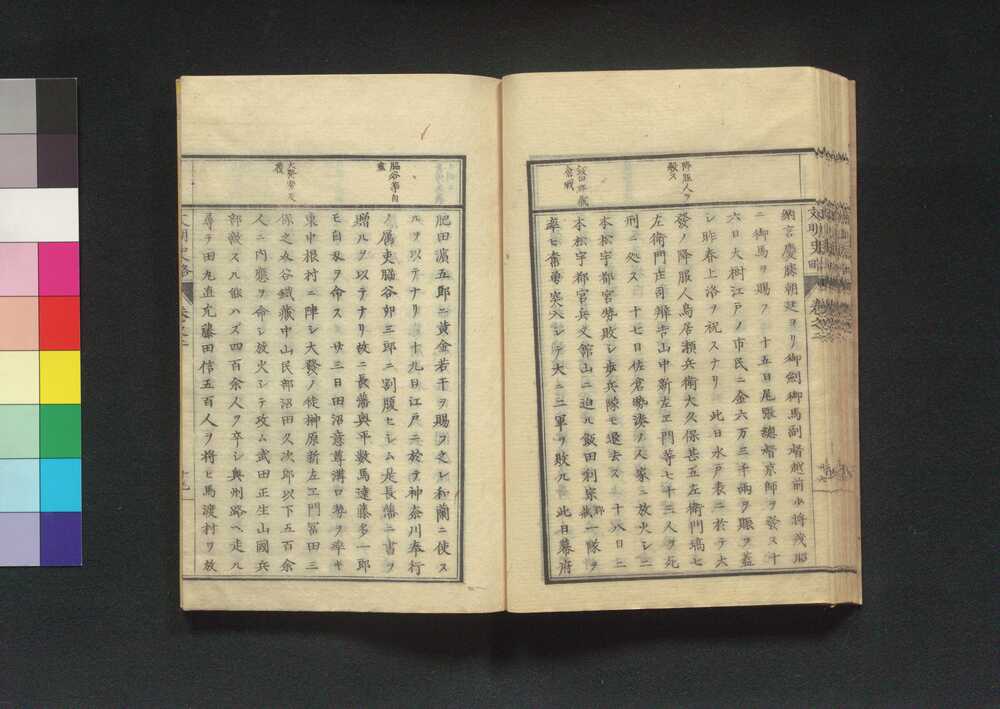 降服人ヲ
殺ス
倉戰
納言慶勝朝廷ヨリ御劍御馬副督越前少將茂昭
ニ御馬ヲ賜フ 十五日尾張總督京師ヲ發ス十
六日大樹江戸ノ市民ニ金六万三千兩ヲ賑ヲ蓋
シ昨春上洛ヲ祝スナリ 此日水戸表ニ於テ大
發ノ降服人鳥居瀬兵衛大久保甚五左衛門塙七
左衛門庄司辨吉山中新左エ門等七十三人ヲ死
刑ニ処ス 十七日佐倉勢湊ノ人家ニ放火シ二
本松宇都宮勢敗レ歩兵隊モ退去ス 十八日二
本松宇都宮兵又館山ニ迫ル飯田利家一隊ヲ
率ヒ奮勇突入シテ大ニ二軍ヲ敗ル 此日幕府
文明史略 卷之
脇谷等自
盡
肥田濵五郎ニ黄金若干ヲ賜フ之レ和蘭ニ使ス
ルヲ以テナリ 十九日江戸ニ於テ神奈川奉行
属吏脇谷卯三郎ニ割腹セシム是長藩ニ書ヲ
贈ルヲ以テナリ故ニ長藩與平數馬遠藤多一郎
モ自殺ヲ命ス 廿三日田沼意尊溝口勢ヲ率ヰ
東中根村ニ陣シ大發ノ徒榊原新左エ門冨田三
保之亟谷鐵藏中山民部沼田久次郎以下五百余
人ニ内應ヲ命シ放火シテ攻ム武田正生山國兵
部敵スル能ハズ四百余人ヲ卒シ奥州路ヘ走ル
尋テ田丸直允藤田信五百人ヲ将ヒ馬渡村ヲ放
文明史略